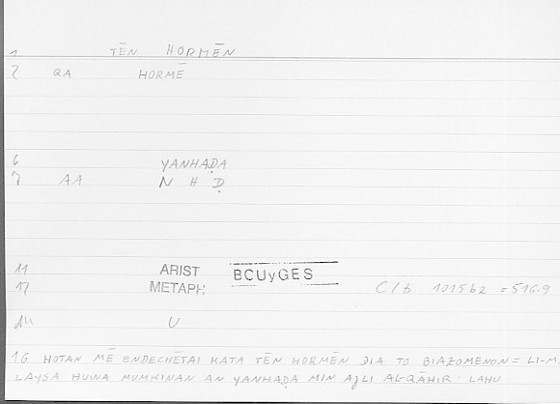 1 TĒN HORMĒN
2 QA HORMĒ
6 YANHAḌA
7 AA N H Ḍ
11 ARIST BCUyGES
12 METAPH C/b 1015b2 = 516.9
14 U
16 HOTAN MĒ ENDECHĒTAI KATA TĒN HORMĒN DIA TO BIAZOMENON = LI-M.
LAYSA HUWA MUMKINAN AN YANHAḌA MIN AJLI AL-QĀHIR LAHU